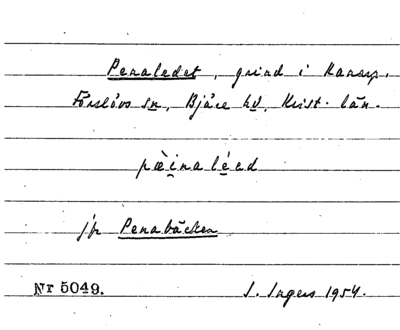 Penaledet, grind i Karup,
Förslövs sn, Bjäre hd, Krist. län.
pæinaléad
jfr Penabäcken
Nr 5049. I. Ingers 1954.